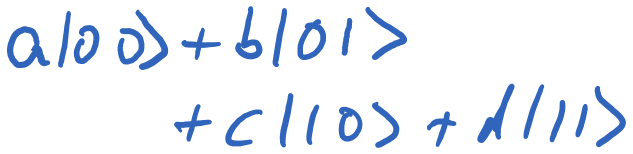 a|00⟩+b|01⟩
+c|10⟩+d|11⟩